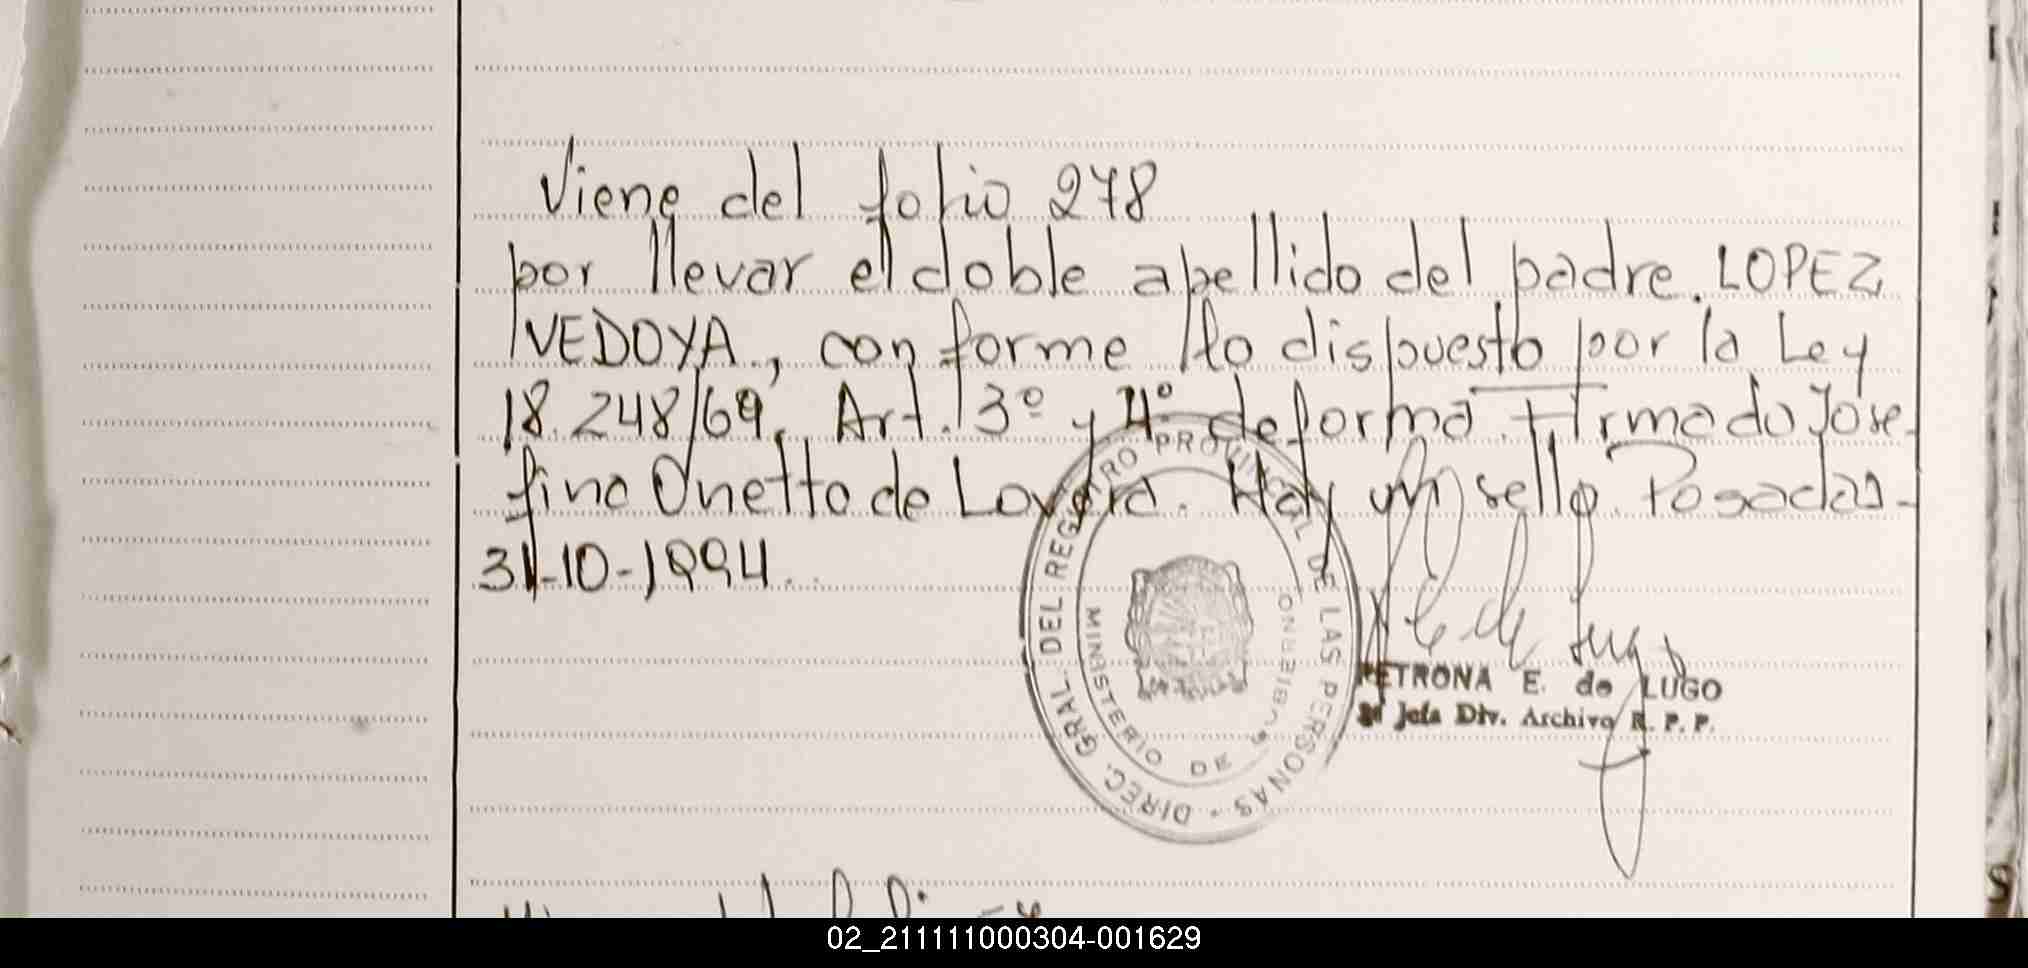 Viene del folio 278
por llevar el doble apellido del padre. LOPEZ
VEDOYA, conforme lo dispuesto por la Ley
18.248/69, Art. 3º y 4º de forma. Firmado Jose-
fina Onetto de Lovera. Hay un sello. Posadas-
31-10-1994.
DIREC. GRAL. DEL REGISTRO PROVINCIAL DE LAS PERSONAS -
MINISTERIO DE GOBIERNO
PETRONA E. de LUGO
Jefa Div. Archivo R. P. P.
02_211111000304-001629